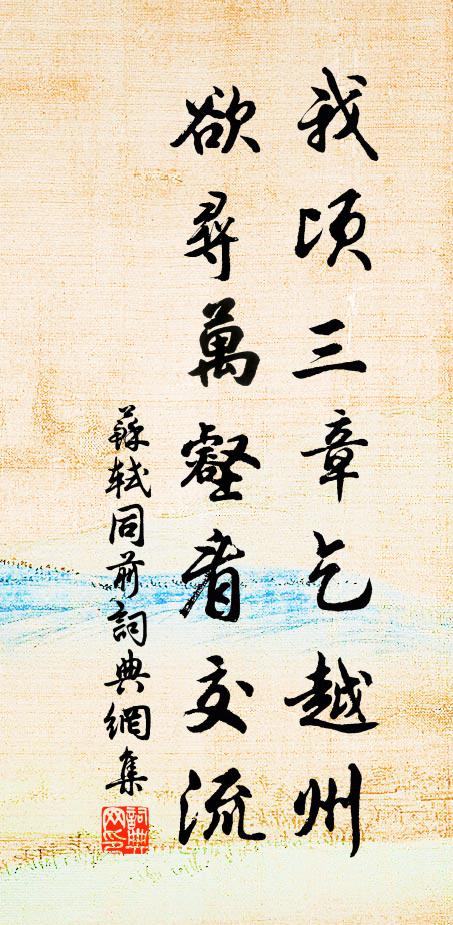 我頃三章乞越州
欲尋萬壑看交流
蘇軾同前詞典網集
詞典網印